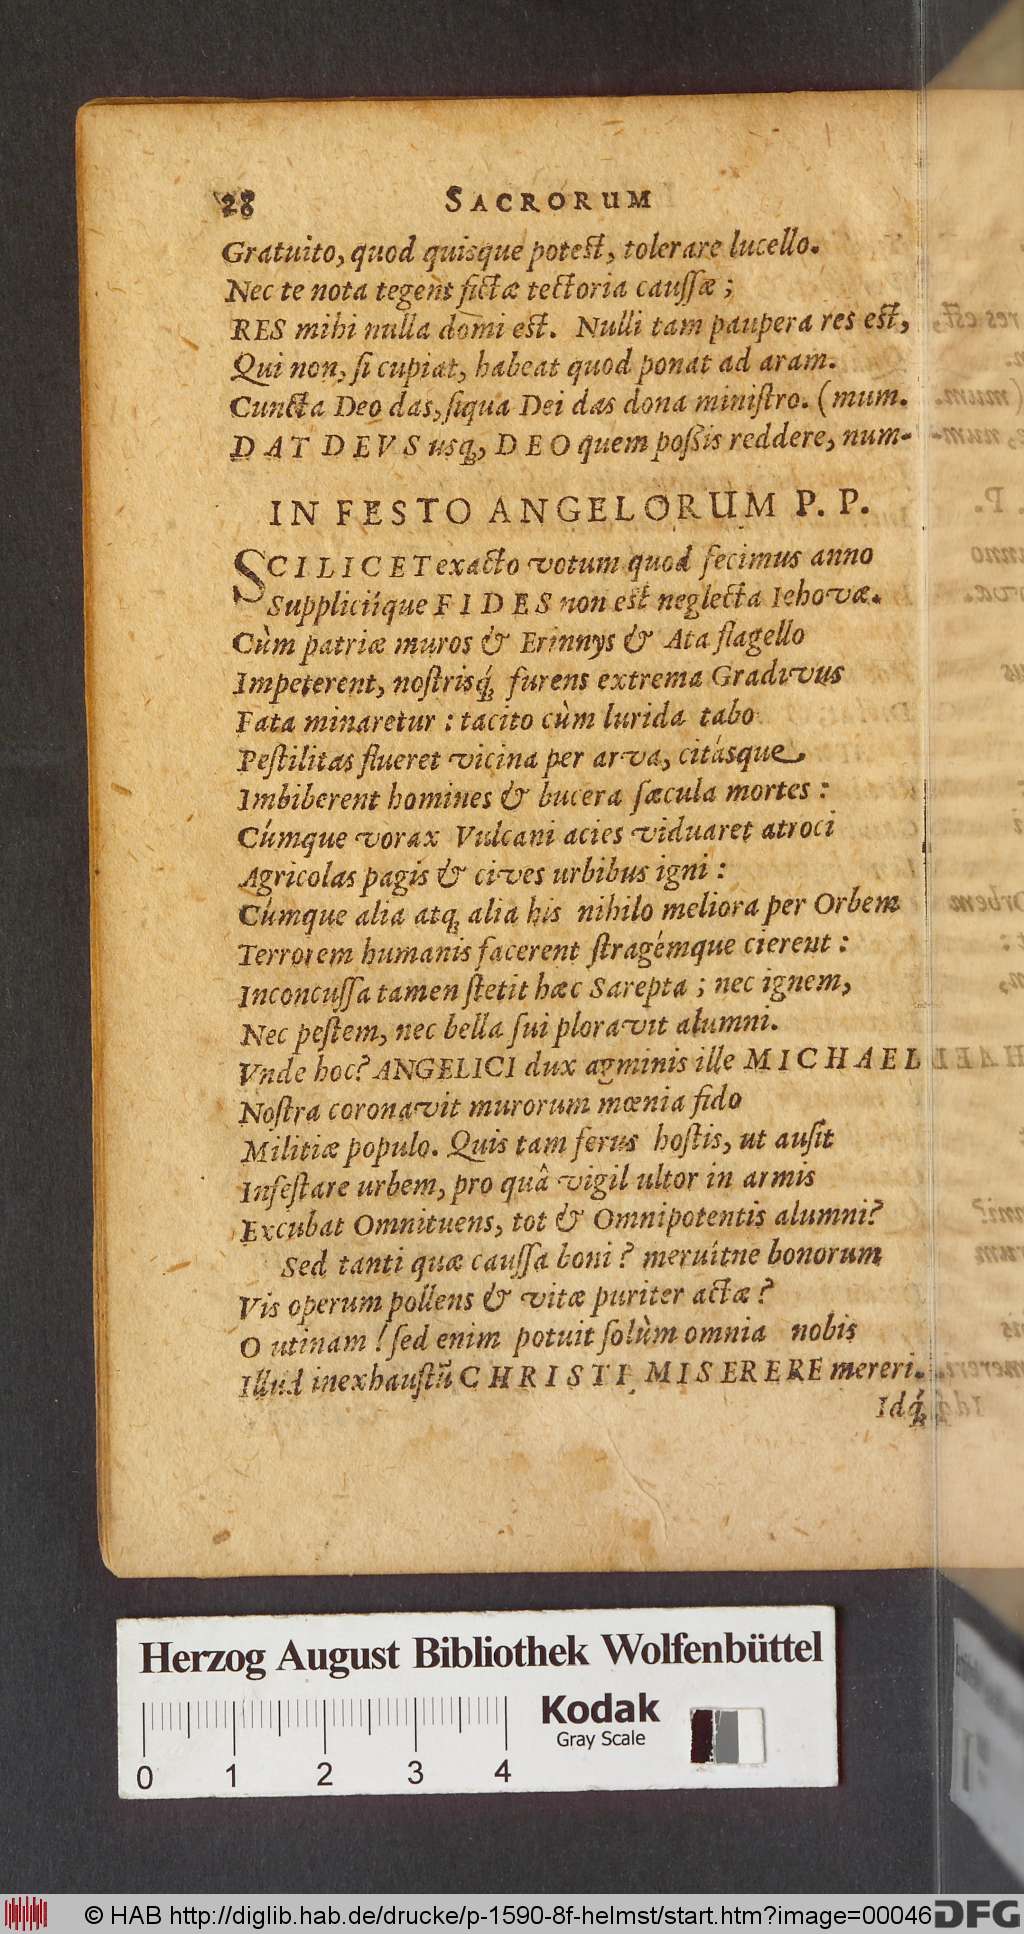 28 SACRORUM
Gratuito, quod quisque potest, tolerare lucello.
Nec te nota tegent fictæ tectoria caussæ ;
RES mihi nulla domi est. Nulli tam paupera res est,
Qui non, si cupiat, habeat quod ponat ad aram.
Cuncta Deo das, siqua Dei das dona ministro. (mum.
DAT DEVS usq́, DEO quem poßis reddere, num-
IN FESTO ANGELORUM P. P.
SCILICET exacto votum quod fecimus anno
Suppliciíque FIDES non est neglecta Iehovæ.
Cùm patriæ muros & Erinnys & Ata flagello
Impeterent, nostrisq́ furens extrema Gradivus
Fata minaretur : tacito cùm lurida tabo
Pestilitas flueret vicina per arva, citásque
Imbiberent homines & bucera sæcula mortes :
Cúmque vorax Vulcani acies viduaret atroci
Agricolas pagis & cives urbibus igni :
Cúmque alia atq, alia his nihilo meliora per Orbem
Terrorem humanis facerent stragémque cierent :
Inconcussa tamen stetit hæc Sarepta ; nec ignem,
Nec pestem, nec bella sui ploravit alumni.
Vnde hoc? ANGELICI dux agminis ille MICHAEL
Nostra coronavit murorum mœnia fido
Militiæ populo. Quis tam ferus hostis, ut ausit
Infestare urbem, pro quâ vigil ultor in armis
Excubat Omnituens, tot & Omnipotentis alumni?
Sed tanti quæ caussa boni ? meruitne bonorum
Vis operum pollens & vitæ puriter actæ ?
O utinam ! sed enim potuit solùm omnia nobis
Illud inexhaustũ CHRISTI MISERERE mereri.
Idq́
Herzog August Bibliothek Wolfenbüttel
Kodak
Gray Scale
0 1 2 3 4
© HAB http://diglib.hab.de/drucke/p-1590-8f-helmst/start.htm?image=00046
DFG